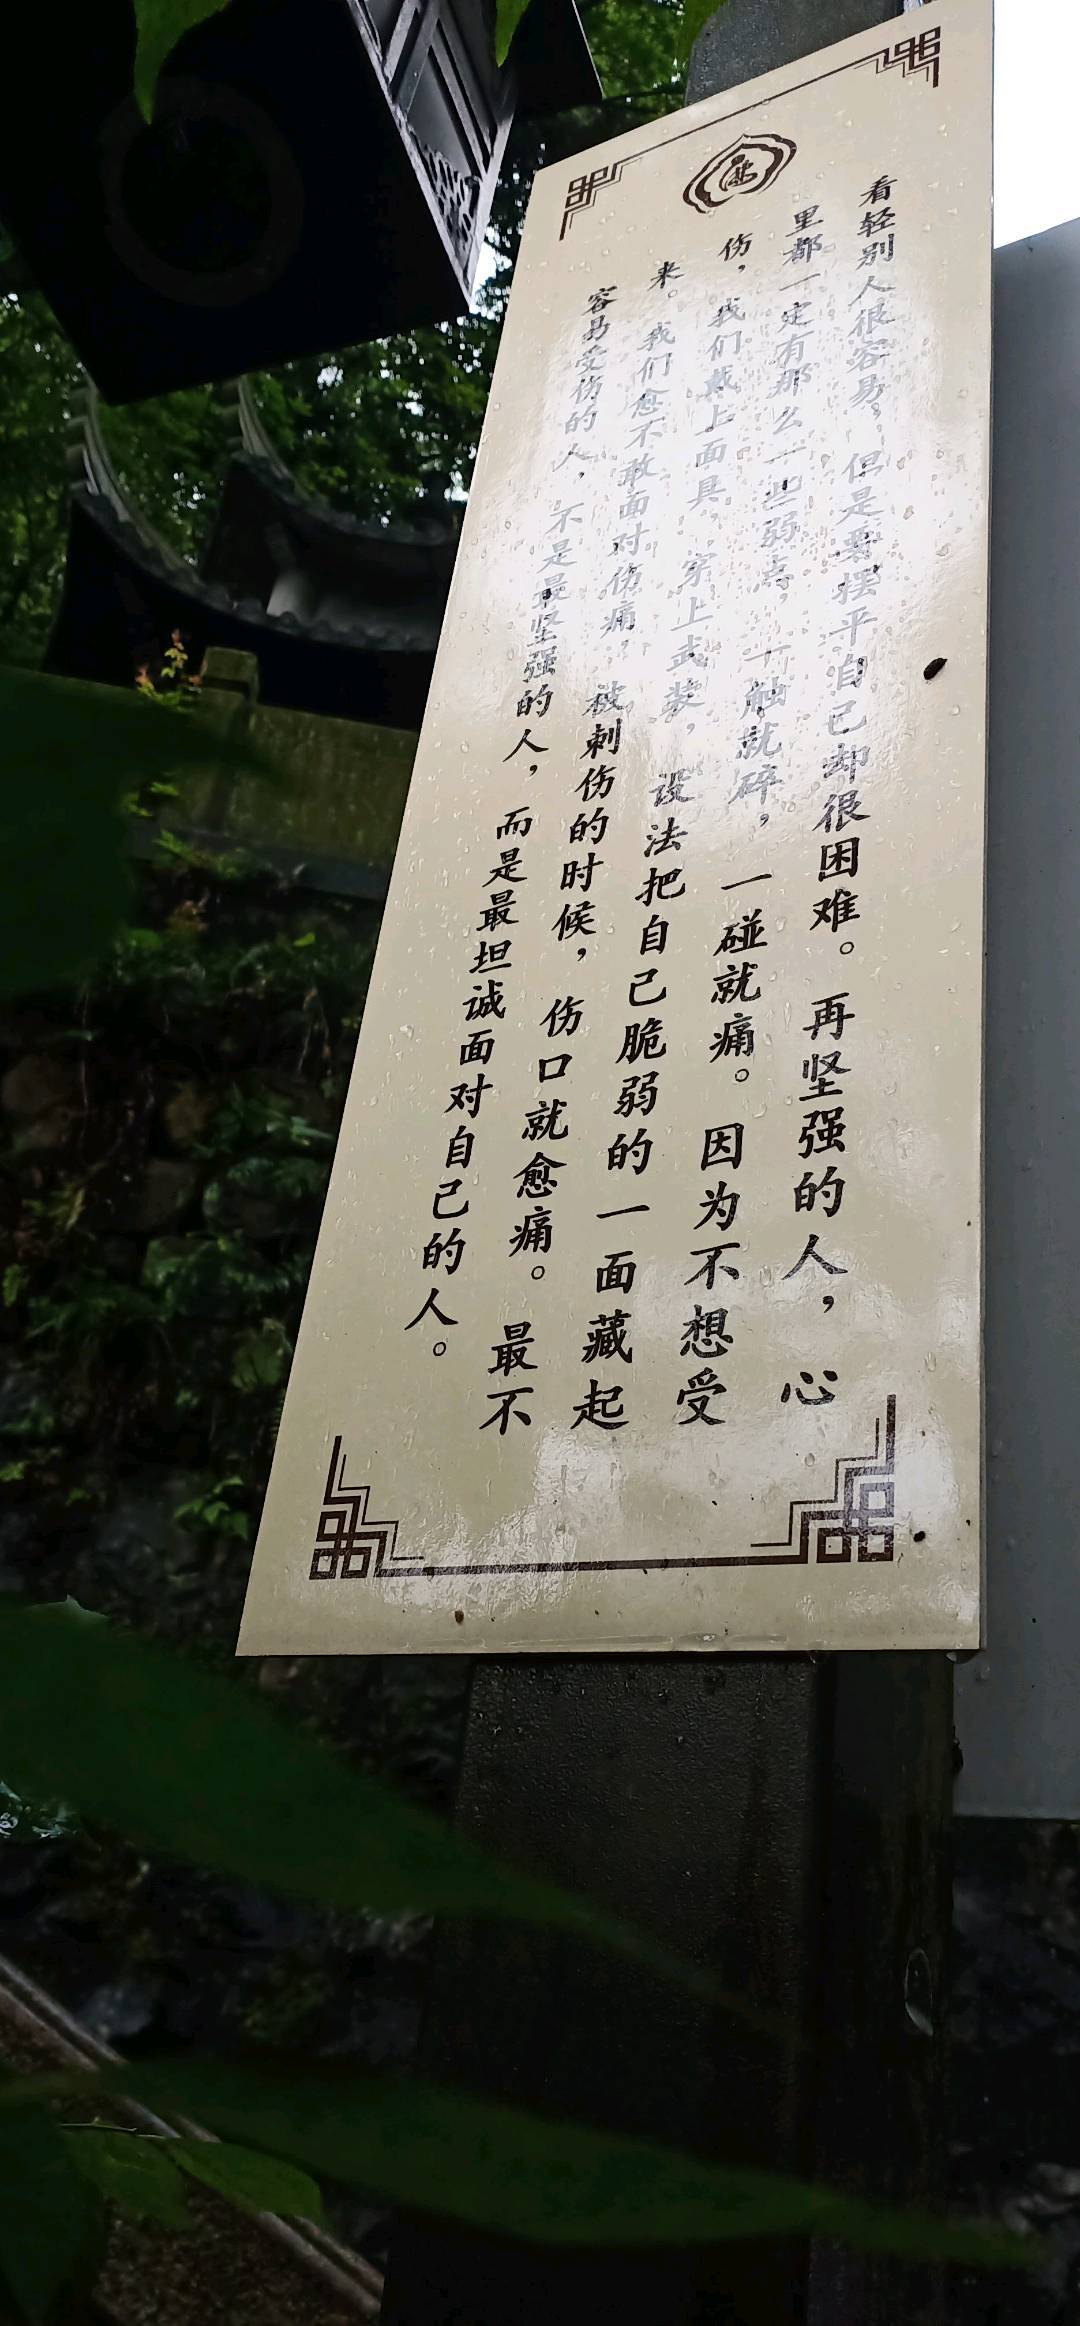 看轻别人很容易，但是要摆平自己却很困难。再坚强的人，心
里都一定有那么一些弱点，一触就碎，一碰就痛。因为不想受
伤，我们戴上面具，穿上武装，设法把自己脆弱的一面藏起
来。我们愈不敢面对伤痛，被刺伤的时候，伤口就愈痛。最不
容易受伤的人，不是最坚强的人，而是最坦诚面对自己的人。